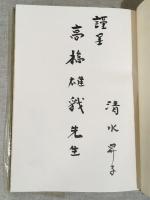 謹呈
高橋雄戩先生
清水昇子